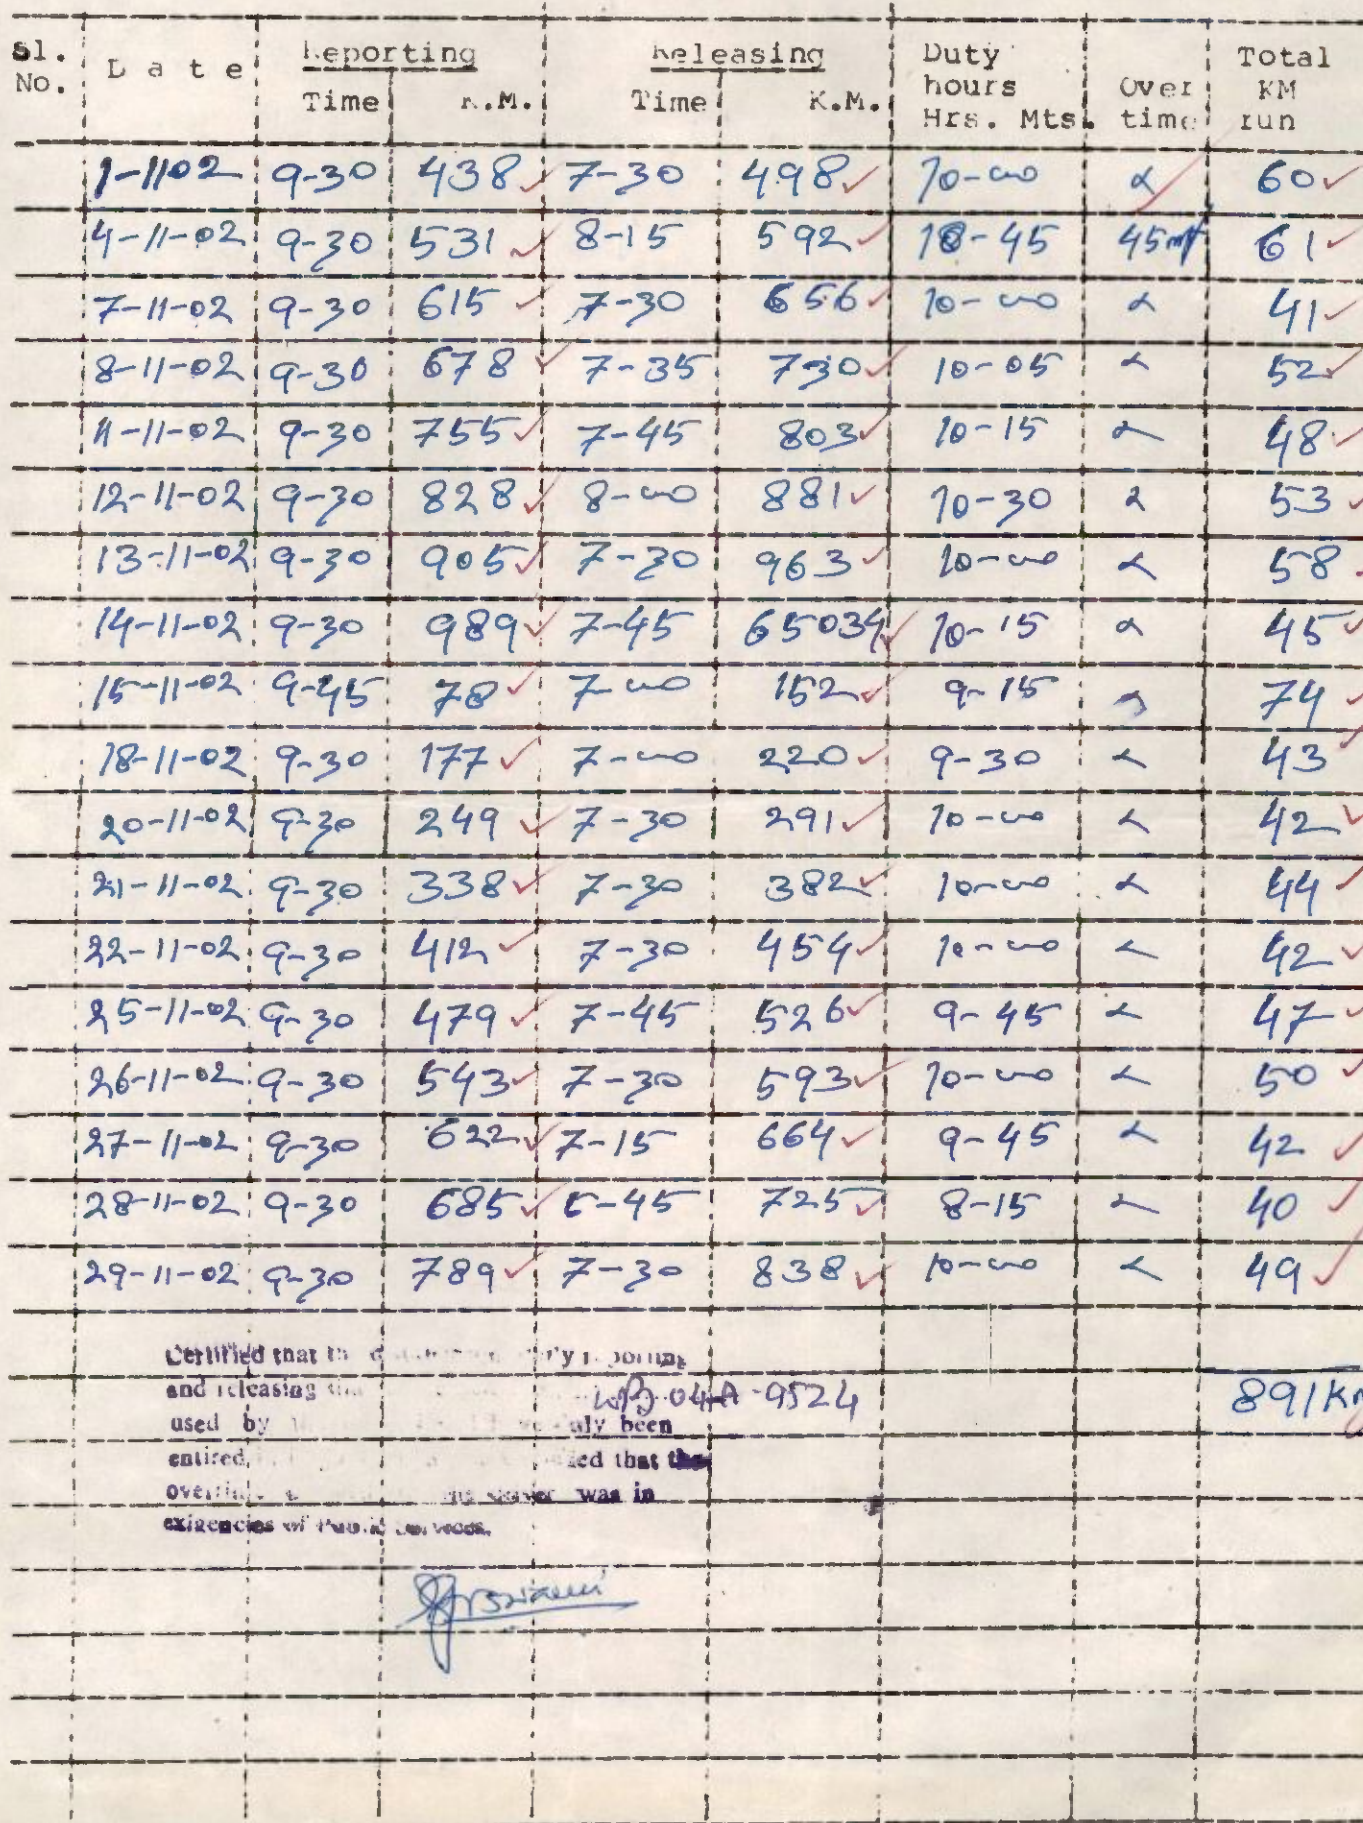 Sl. No. Date Reporting Time K.M. Releasing Time K.M. Duty hours Hrs. Mts. Over time Total KM run
1-1102 9-30 438 7-30 498 10-00 α 60
4-11-02 9-30 531 8-15 592 10-45 45mt 61
7-11-02 9-30 615 7-30 656 10-00 α 41
8-11-02 9-30 678 7-35 730 10-05 α 52
11-11-02 9-30 755 7-45 803 10-15 α 48
12-11-02 9-30 828 8-00 881 10-30 α 53
13-11-02 9-30 905 7-30 963 10-00 α 58
14-11-02 9-30 989 7-45 65034 10-15 α 45
15-11-02 9-45 78 7-00 152 9-15 α 74
18-11-02 9-30 177 7-00 220 9-30 α 43
20-11-02 9-30 249 7-30 291 10-00 α 42
21-11-02 9-30 338 7-30 382 10-00 α 44
22-11-02 9-30 412 7-30 454 10-00 α 42
25-11-02 9-30 479 7-45 526 9-45 α 47
26-11-02 9-30 543 7-30 593 10-00 α 50
27-11-02 9-30 622 7-15 664 9-45 α 42
28-11-02 9-30 685 5-45 725 8-15 α 40
29-11-02 9-30 789 7-30 838 10-00 α 49
Certified that reporting
and releasing WB-04-A-9524 891 Km
used by duly been
entired that the
was in
exigencies of Public Services.